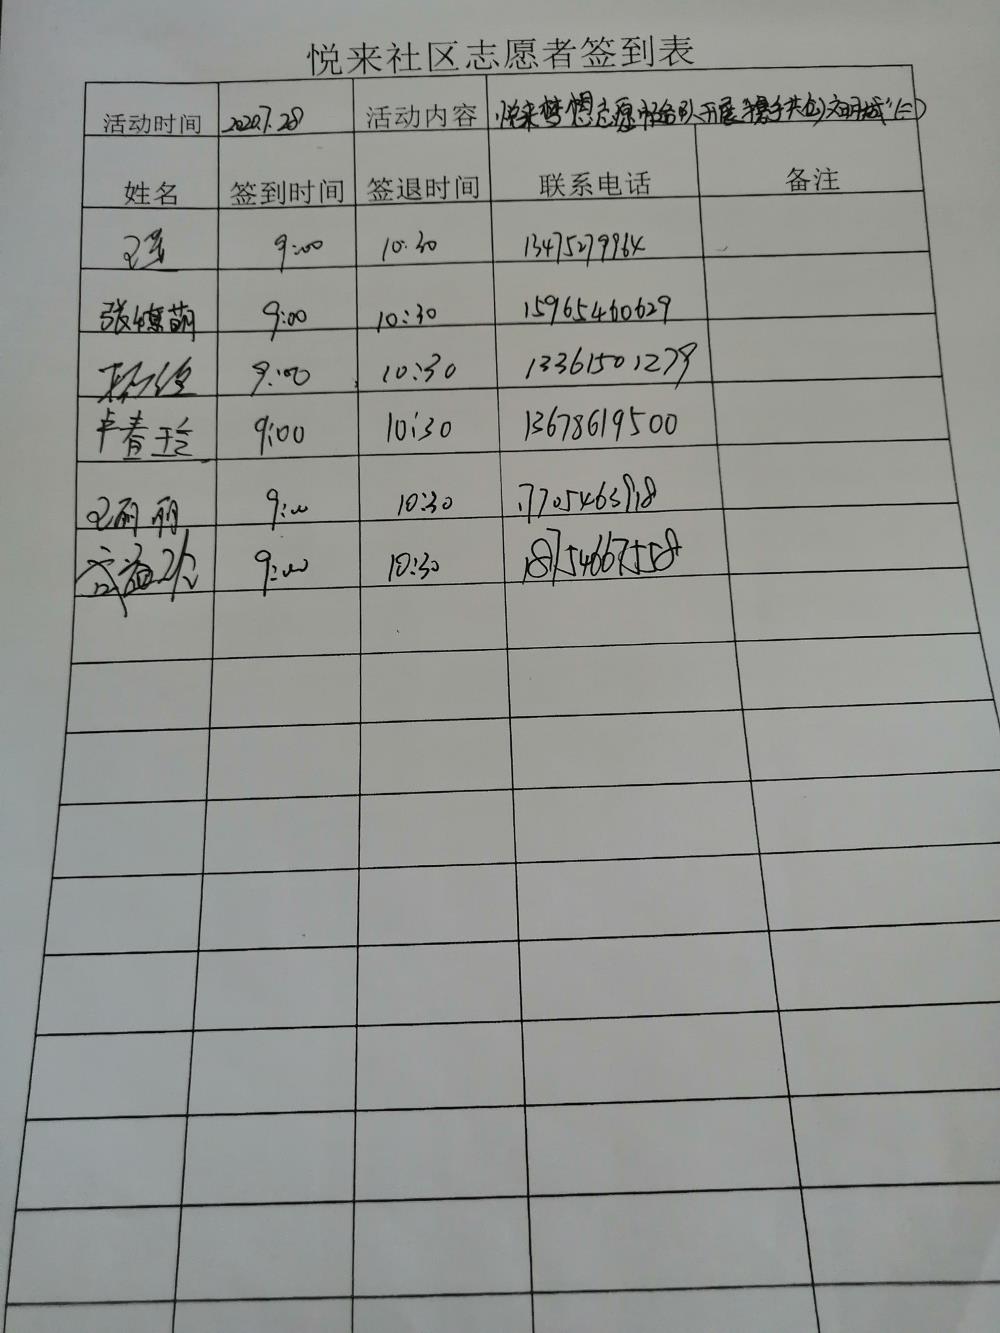 悦来社区志愿者签到表
活动时间 2020.7.28 活动内容 悦来梦想志愿服务队开展"携手共创文明城"(二)
姓名 签到时间 签退时间 联系电话 备注
9:00 10:30 13475279964
张 萌 9:00 10:30 15965460629
9:00 10:30 13361501279
卢春玲 9:00 10:30 13678619500
王丽丽 9:00 10:30
9:00 10:30 18754667558